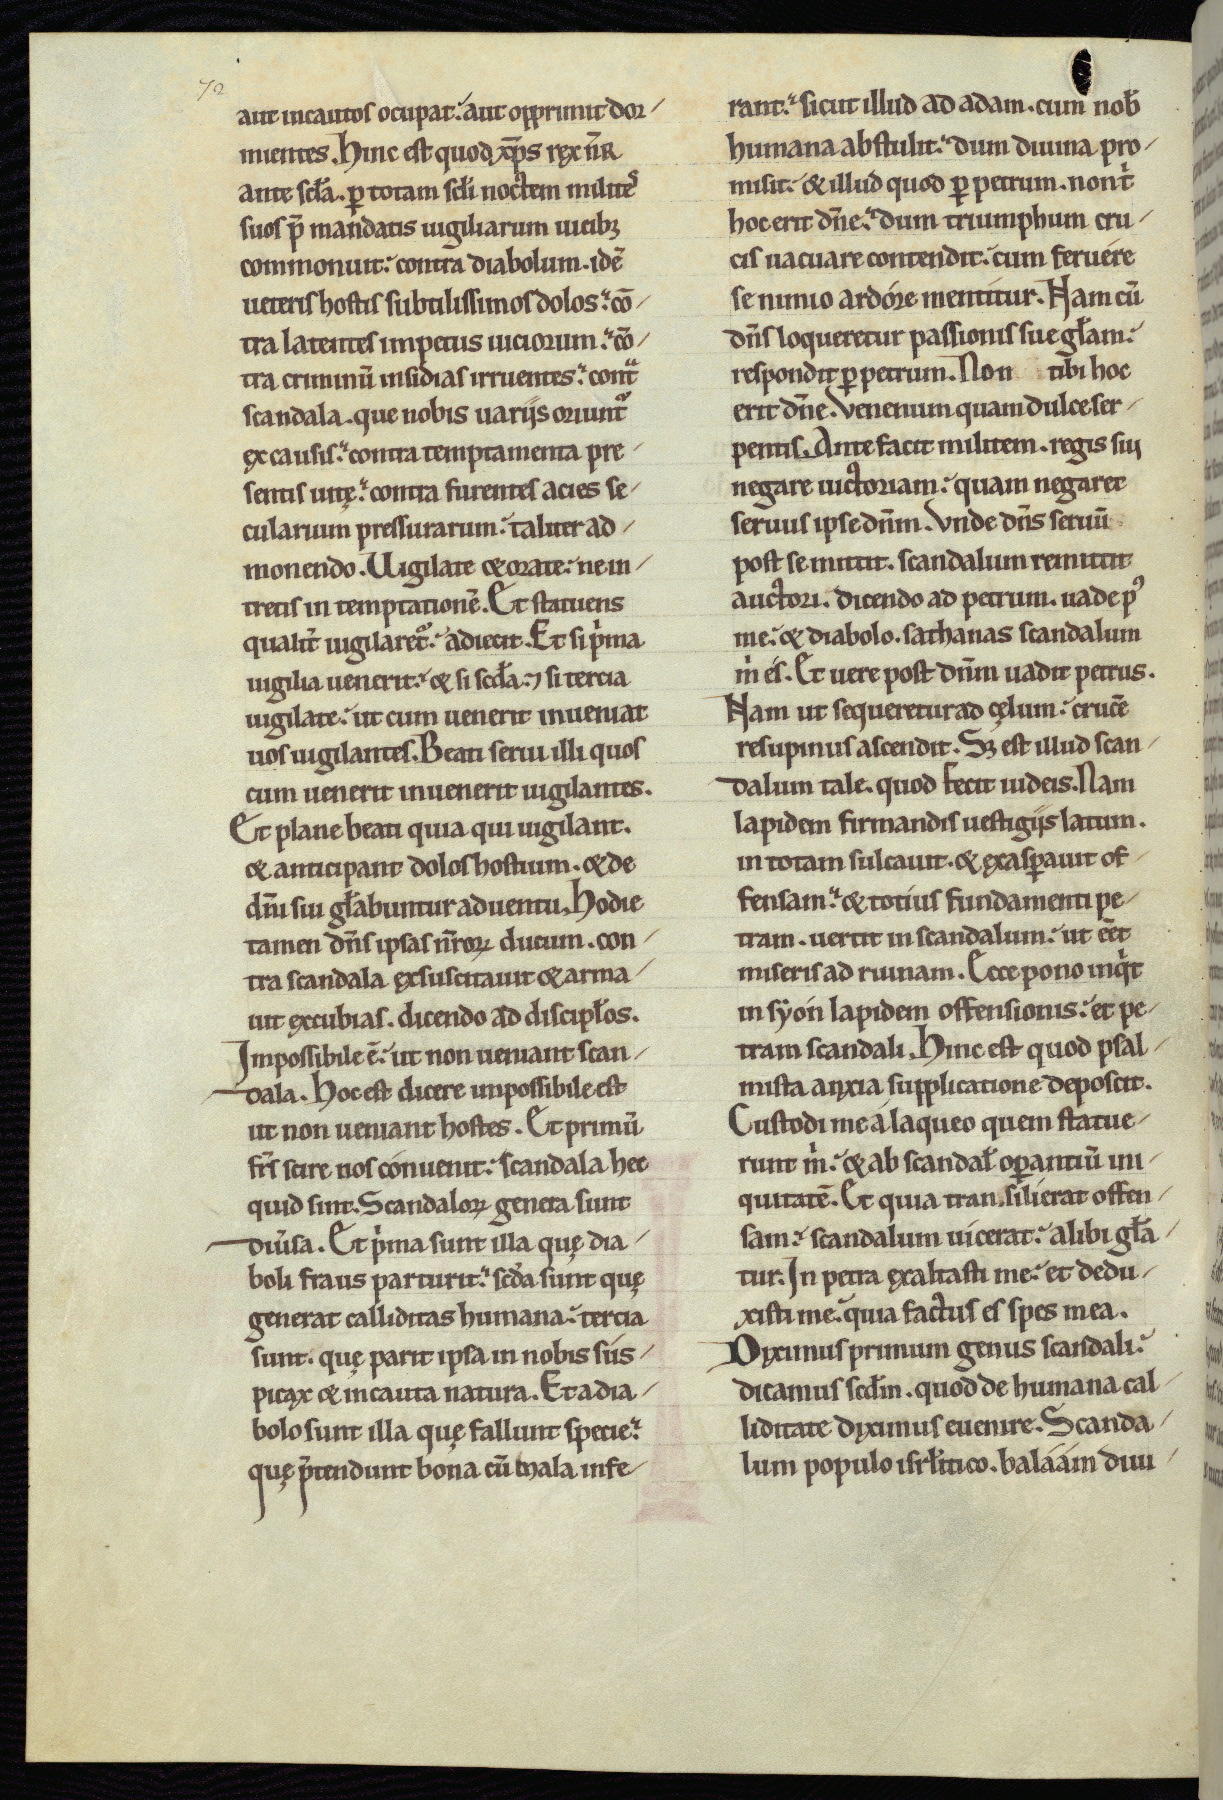 72
aut incautos ocupat: aut opprimit dor-
mientes. Hinc est quod xp̄s rex nr̄
ante scl̄a. ꝑ totam scl̄i noctem milites
suos p̄ mandatis uigiliarum uicibꝫ
commonuit: contra diabolum. idē
ueteris hostis subtilissimos dolos: cō-
tra latentes impetus uiciorum: cō-
tra criminū insidias irruentes: cont̄
scandala. que nobis uarijs oriunt̄
ex causis: contra temptamenta pre-
sentis uitę: contra furentes acies se-
cularium pressurarum: taliter ad-
monendo. Uigilate & orate: ne in-
tretis in temptationē. Et statuens
qualit̄ uigilaret̄: adiecit. Et si p̍ma
uigilia uenerit: & si scd̄a: ⁊ si tercia
uigilate: ut cum uenerit inueniat
uos uigilantes. Beati serui illi quos
cum uenerit inuenerit uigilantes.
Et plane beati quia qui uigilant.
& anticipant dolos hostium. & de
dn̄i sui gl̄abuntur aduentu. Hodie
tamen dn̄s ipsas nr̄oꝝ ducum. con-
tra scandala exsuscitauit & arma-
uit excubias. dicendo ad discipl̄os.
Impossibile ē: ut non ueniant scan-
dala. Hoc est dicere impossibile est
ut non ueniant hostes. Et primū
fr̄s scire nos conuenit: scandala hec
quid sint. Scandaloꝝ genera sunt
diu̍sa. Et p̍ma sunt illa quę dia-
boli fraus parturit: scd̄a sunt quę
generat calliditas humana: tercia
sunt. quę parit ipsa in nobis sus-
picax & incauta natura. Et a dia-
bolo sunt illa quę fallunt specie:
quę p̄tendunt bona cū mala infe-
rant: sicut illud ad adam. cum nob̄
humana abstulit: dum diuina pro-
misit: & illud quod ꝑ petrum. non t̍
hoc erit dn̄e: dum triumphum cru-
cis uacuare contendit: cum feruere
se nimio ardore mentitur. Nam cū
dn̄s loqueretur passionis sue gl̄am:
respondit ꝑ petrum. Non tibi hoc
erit dn̄e. Venenum quam dulce ser-
pentis. Ante facit militem. regis sui
negare uictoriam: quam negaret
seruus ipse dn̄m. Vnde dn̄s seruū
post se mittit. scandalum remittit
auctori. dicendo ad petrum. uade pꝰ
me: & diabolo. sathanas scandalum
m̍ es. Et uere post dn̄m uadit petrus.
Nam ut sequeretur ad cęlum: crucē
resupinus ascendit. Sꝫ est illud scan-
dalum tale. quod fecit iudeis. Nam
lapidem firmandis uestigijs latum.
in totam sulcauit. & exasꝑauit of-
fensam: & totius fundamenti pe-
tram. uertit in scandalum: ut eēt
miseris ad ruinam. Ecce pono inq̍t
in syon lapidem offensionis: et pe-
tram scandali. Hinc est quod psal-
mista anxia supplicatione deposcit.
Custodi me a laqueo quem statue-
runt m̍: & ab scandal̄ oꝑantiū ini-
quitatē. Et quia transilierat offen-
sam: scandalum uicerat: alibi gl̄a-
tur. In petra exaltasti me: et dedu-
xisti me: quia factus es spes mea.
Dyximus primum genus scandali:
dicamus scd̄m. quod de humana cal-
liditate dyximus euenire. Scanda-
lum populo isrl̄itico. balaam diui-